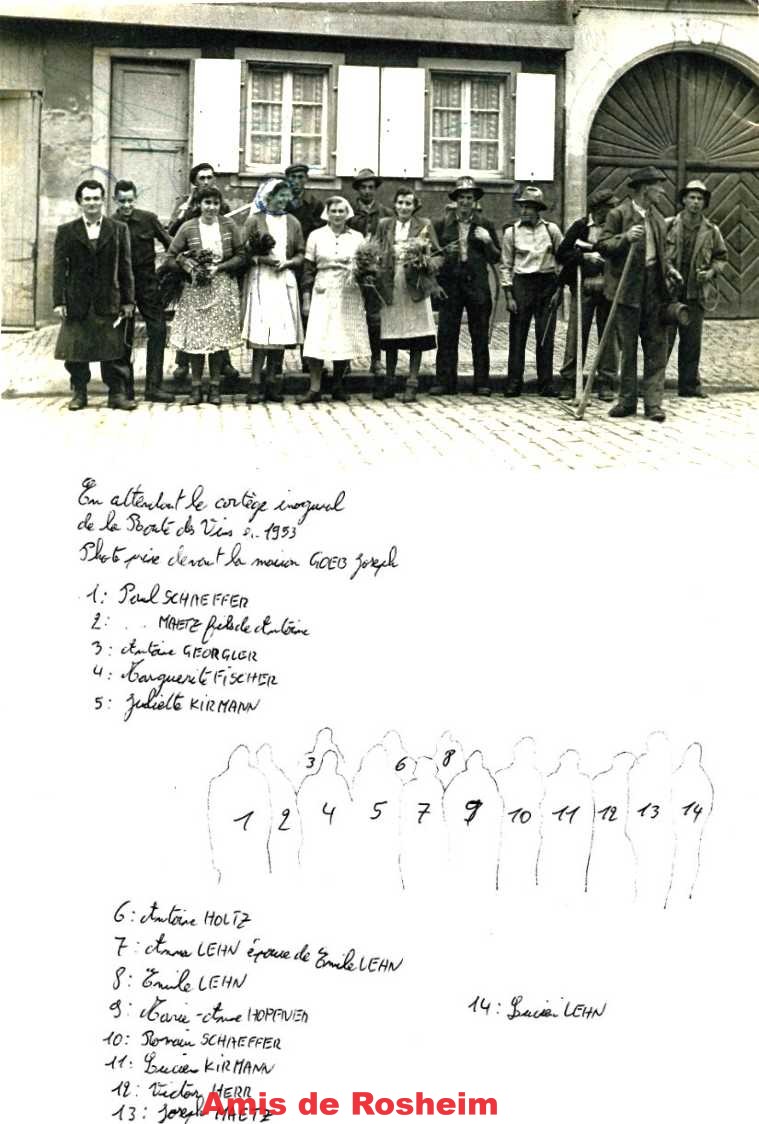 En attendant le cortège inaugural
de la Route des Vins en 1953
Photo prise devant la maison GOEB Joseph
1: Paul SCHAEFFER
2: . . MAETZ fils de Antoine
3: Antoine GEORGLER
4: Marguerite FISCHER
5: Juliette KIRMANN
3 6 8
1 2 4 5 7 9 10 11 12 13 14
6: Antoine HOLTZ
7: Anna LEHN épouse de Emile LEHN
8: Emile LEHN
9: Marie-Anne
14: Lucien LEHN
10: Romain SCHAEFFER
11: Lucien KIRMANN
12: Victor HERR
13: Joseph MAETZ
Amis de Rosheim